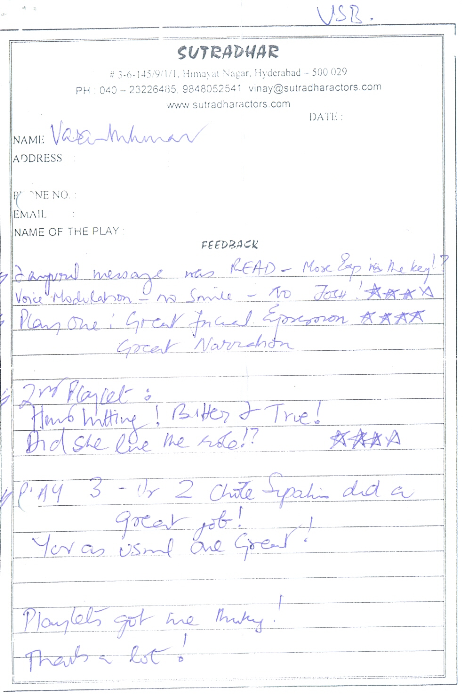 VSB.
SUTRADHAR
# 3-6-145/9/1/1, Himayat Nagar, Hyderabad – 500 029
PH : 040 – 23226485, 9848052541 vinay@sutradharactors.com
www.sutradharactors.com
DATE :
NAME
ADDRESS :
PHONE NO. :
EMAIL :
NAME OF THE PLAY :
FEEDBACK
message was READ – More Exp is the key!?
Voice Modulation – no Smile – no Josh! ☆☆☆☆
Play One : Great Expression ☆☆☆☆
Great Narration
2nd Playlet :
Hard hitting! Bitter & True!
Did she live the role!? ☆☆☆☆
PLAY 3 – 2 Chote did a
great job!
You as usual are Great!
Playlets got me thinking!
Thanks a lot!